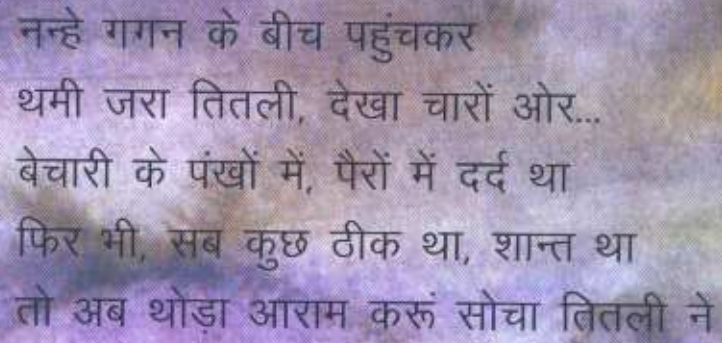 नन्हे गगन के बीच पहुंचकर
थमी जरा तितली, देखा चारों ओर...
बेचारी के पंखों में, पैरों में दर्द था
फिर भी, सब कुछ ठीक था, शान्त था
तो अब थोड़ा आराम करूं सोचा तितली ने